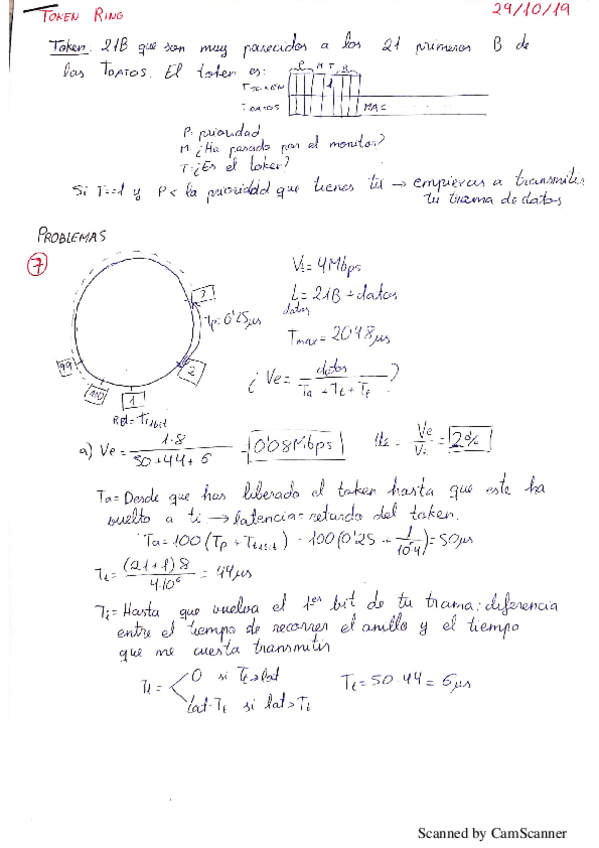 TOKEN RING
29/10/19
Token: 21B que son muy parecidos a los 21 primeros B de
las TDATOS. El token es:
P M T R
TTOKEN
1
TDATOS
MAC
P: prioridad
M: ¿Ha pasado por el monitor?
T: ¿Es el token?
Si T=1 y P< la prioridad que tienes tú → empiezas a transmitir
tu trama de datos
PROBLEMAS
7
Vt = 4Mbps
L = 21B + datos
datos
Tmax = 2048 μs
¿Ve = datos / Ta + Tt + Tt ?
3
Tp = 0'25 μs
2
99
100
1
Ret = Tt1bit
a) Ve = 1·8 / 50+44+6 = 0'08 Mbps
= Ve / Vt = 2%
Ta = Desde que has liberado el token hasta que este ha
vuelto a ti → latencia = retardo del token.
Ta = 100 (Tp + Tt1bit) = 100 (0'25 + 1 / ) = 50 μs
Tt = (21+1)8 / 4·10⁶ = 44 μs
Tt = Hasta que vuelva el 1er bit de tu trama: diferencia
entre el tiempo de recorrer el anillo y el tiempo
que me cuesta transmitir
Tt = 0 si Tt > lat
lat - Tt si lat > Tt
Tt = 50 - 44 = 6 μs
Scanned by CamScanner